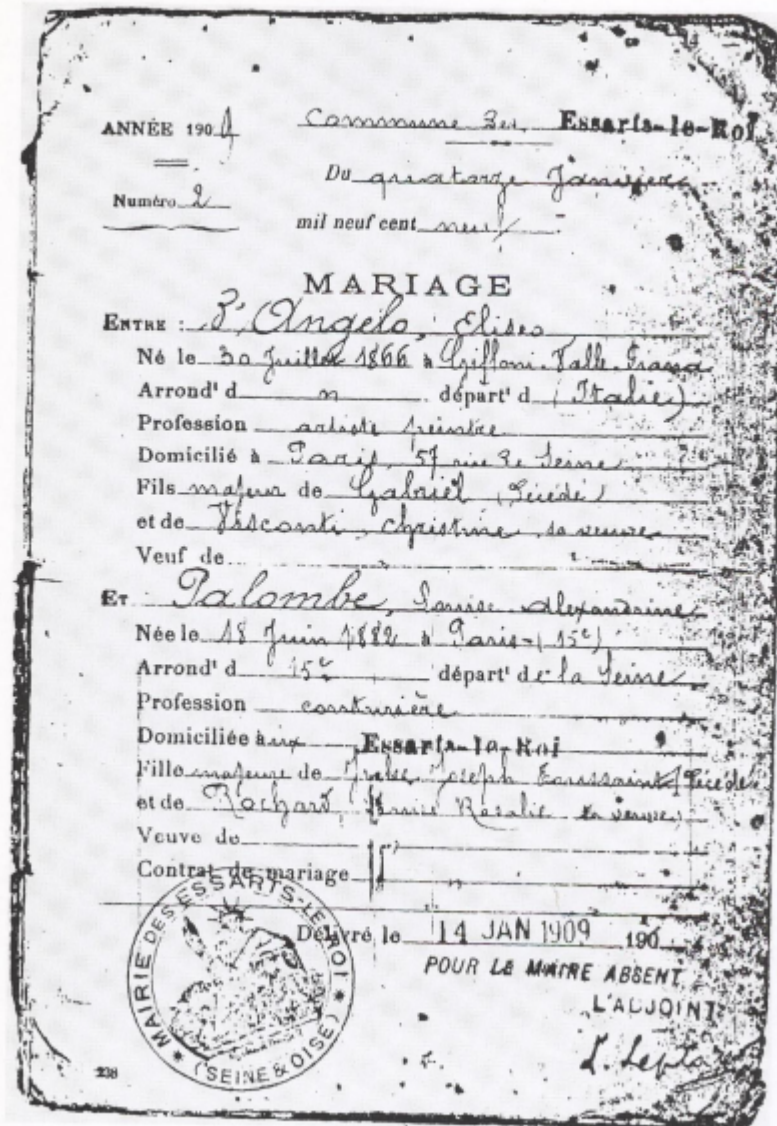 ANNÉE 1909 Commune des Essarts-le-Roi
Du quatorze Janvier
Numéro 2
mil neuf cent neuf
MARIAGE
ENTRE : D'Angelo, Eliseo
Né le 30 Juillet 1866 à Giffoni-Valle-Piana
Arrond't d " départ't d (Italie)
Profession artiste peintre
Domicilié à Paris, 57 rue de Seine
Fils majeur de Gabriel, (décédé)
et de Visconti, Christine sa veuve
Veuf de
ET Palombe, Louise Alexandrine
Née le 18 Juin 1882 à Paris (15e)
Arrond't d 15e départ't de la Seine
Profession couturière
Domiciliée aux Essarts-le-Roi
Fille majeure de Joseph Toussaint (décédé)
et de Rochard, Rosalie sa veuve
Veuve de
Contrat de mariage "
Délivré le 14 JAN 1909 190
POUR LE MAIRE ABSENT
L'ADJOINT
MAIRIE DES ESSARTS-LE-ROI
(SEINE & OISE)
238